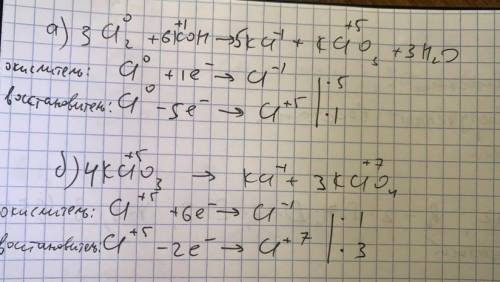 а) 3Cl₂⁰ + 6K⁺¹OH → 5KCl⁻¹ + KCl⁺⁵O₃ + 3H₂O
окислитель: Cl⁰ + 1e⁻ → Cl⁻¹ | · 5
восстановитель: Cl⁰ - 5e⁻ → Cl⁺⁵ | · 1
б) 4KCl⁺⁵O₃ → KCl⁻¹ + 3KCl⁺⁷O₄
окислитель: Cl⁺⁵ + 6e⁻ → Cl⁻¹ | · 1
восстановитель: Cl⁺⁵ - 2e⁻ → Cl⁺⁷ | · 3